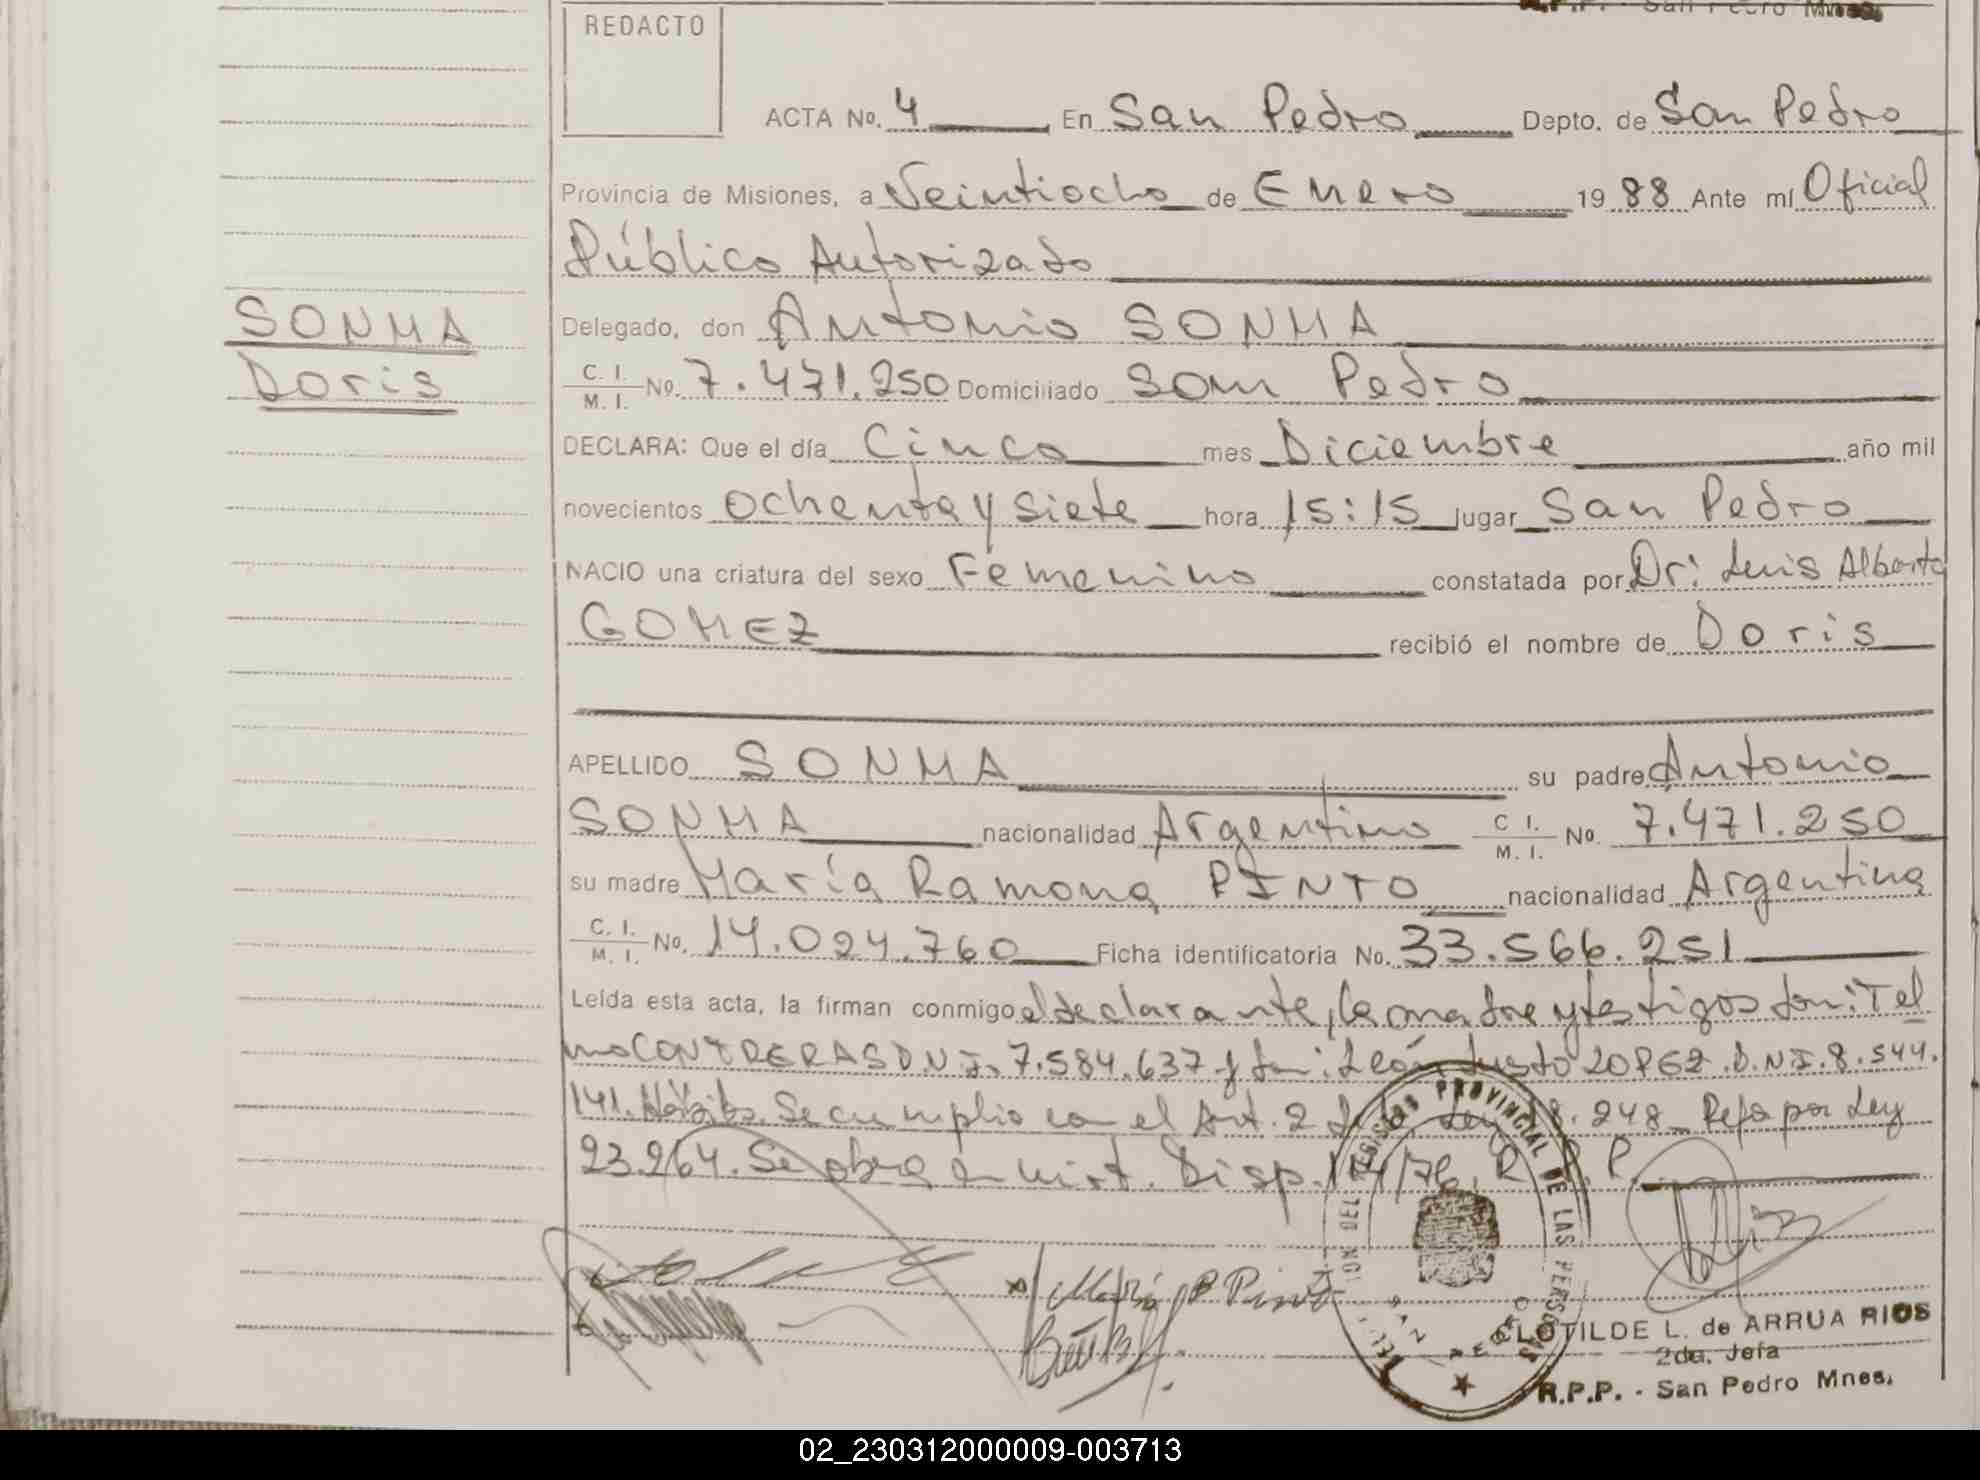 R.P.P. - San Pedro Mnes.
REDACTO
ACTA No. 4 En San Pedro Depto. de San Pedro
Provincia de Misiones, a Veintiocho de Enero 1988 Ante mí Oficial
Público Autorizado
SONMA
Delegado, don Antonio SONMA
Doris
C. I.
M. I. No. 7.471.250 Domiciliado San Pedro
DECLARA: Que el día Cinco mes Diciembre año mil
novecientos ochenta y siete hora 15:15 lugar San Pedro
NACIO una criatura del sexo Femenino constatada por Dr: Luis Alberto
GOMEZ recibió el nombre de Doris
APELLIDO SONMA su padre Antonio
SONMA nacionalidad Argentino C I. M. I. No. 7.471.250
su madre María Ramona PINTO nacionalidad Argentina
C. I. M. I. No. 14.024.760 Ficha identificatoria No. 33.566.251
Leída esta acta, la firman conmigo el declarante, la madre y testigos don: Tel
mo CONTRERAS D.N.I. 7.584.637 y don: León Justo LOPEZ D.N.I. 8.544.
141. Hábiles. Se cumplio con el Art. 2 de la Ley 18.248 Refo por Ley
23.264. Se obra en virt. Disp. 114/76. R.P.P.
DELEGACION DEL REGISTRO PROVINCIAL DE LAS PERSONAS
SAN PEDRO
María R Pinto
CLOTILDE L. de ARRUA RIOS
2da. Jefa
R.P.P. - San Pedro Mnes.
02_230312000009-003713